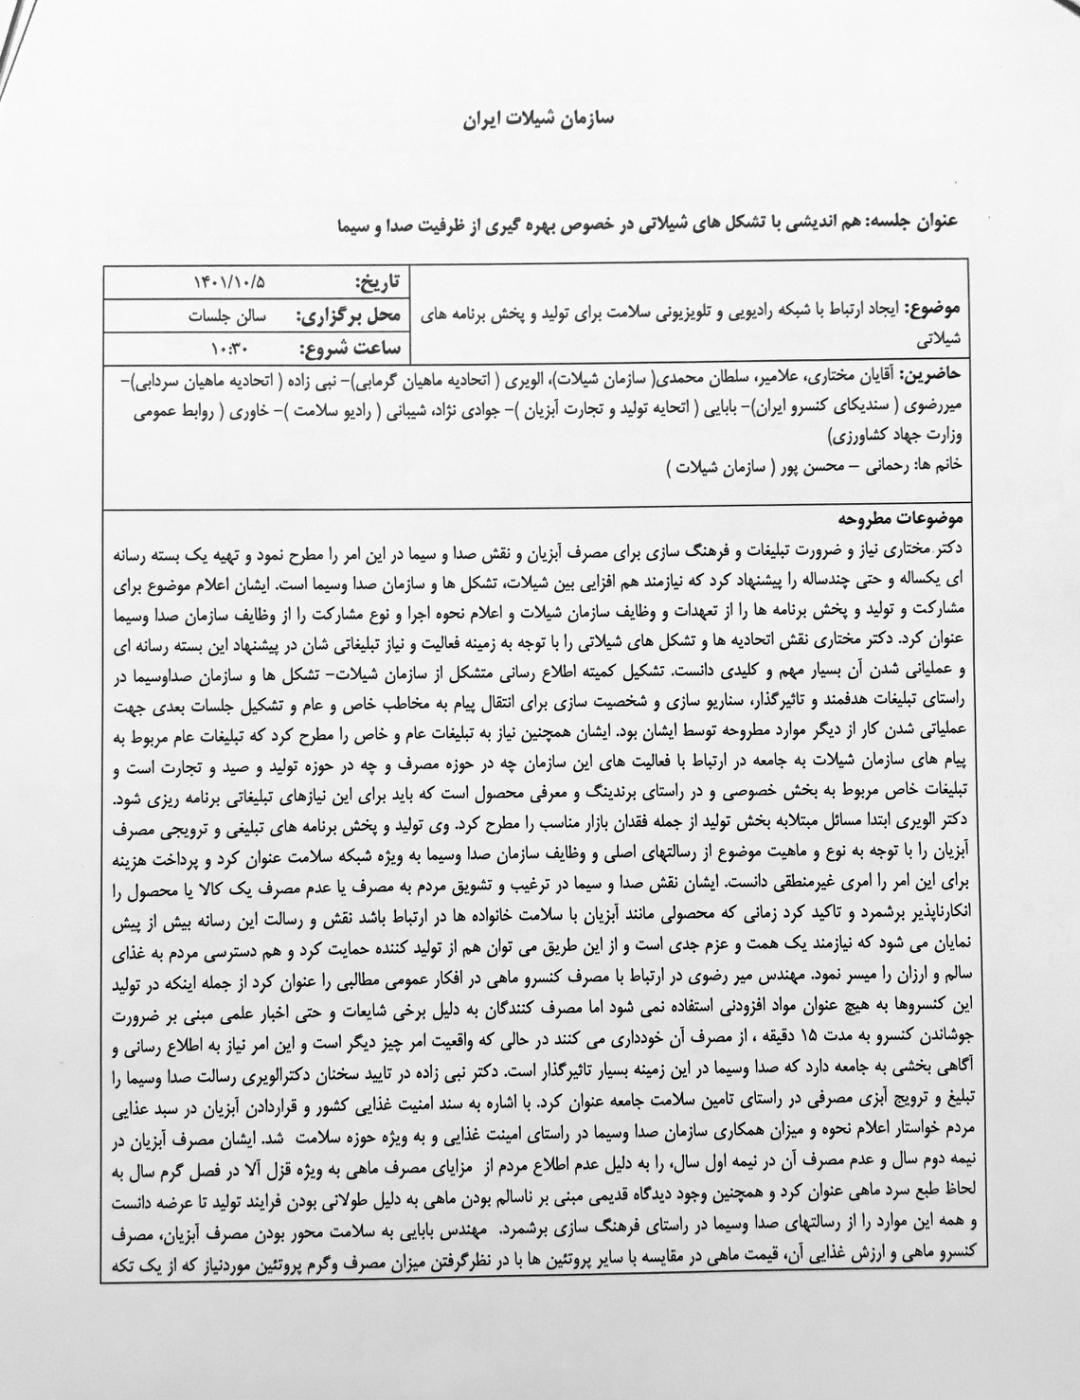 سازمان شیلات ایران
عنوان جلسه: هم اندیشی با تشکل های شیلاتی در خصوص بهره گیری از ظرفیت صدا و سیما
موضوع: ایجاد ارتباط با شبکه رادیویی و تلویزیونی سلامت برای تولید و پخش برنامه های
شیلاتی
تاریخ: ۱۴۰۱/۱۰/۵
محل برگزاری: سالن جلسات
ساعت شروع: ۱۰:۳۰
حاضرین: آقایان مختاری، علامیر، سلطان محمدی( سازمان شیلات)، الویری ( اتحادیه ماهیان گرمابی)– نبی زاده ( اتحادیه ماهیان سردابی)–
میررضوی ( سندیکای کنسرو ایران)– بابایی ( اتحایه تولید و تجارت آبزیان )– جوادی نژاد، شیبانی ( رادیو سلامت )– خاوری ( روابط عمومی
وزارت جهاد کشاورزی)
خانم ها: رحمانی – محسن پور ( سازمان شیلات )
موضوعات مطروحه
دکتر مختاری نیاز و ضرورت تبلیغات و فرهنگ سازی برای مصرف آبزیان و نقش صدا و سیما در این امر را مطرح نمود و تهیه یک بسته رسانه
ای یکساله و حتی چندساله را پیشنهاد کرد که نیازمند هم افزایی بین شیلات، تشکل ها و سازمان صدا وسیما است. ایشان اعلام موضوع برای
مشارکت و تولید و پخش برنامه ها را از تعهدات و وظایف سازمان شیلات و اعلام نحوه اجرا و نوع مشارکت را از وظایف سازمان صدا وسیما
عنوان کرد. دکتر مختاری نقش اتحادیه ها و تشکل های شیلاتی را با توجه به زمینه فعالیت و نیاز تبلیغاتی شان در پیشنهاد این بسته رسانه ای
و عملیانی شدن آن بسیار مهم و کلیدی دانست. تشکیل کمیته اطلاع رسانی متشکل از سازمان شیلات– تشکل ها و سازمان صداوسیما در
راستای تبلیغات هدفمند و تاثیرگذار، سناریو سازی و شخصیت سازی برای انتقال پیام به مخاطب خاص و عام و تشکیل جلسات بعدی جهت
عملیاتی شدن کار از دیگر موارد مطروحه توسط ایشان بود. ایشان همچنین نیاز به تبلیغات عام و خاص را مطرح کرد که تبلیغات عام مربوط به
پیام های سازمان شیلات به جامعه در ارتباط با فعالیت های این سازمان چه در حوزه مصرف و چه در حوزه تولید و صید و تجارت است و
تبلیغات خاص مربوط به بخش خصوصی و در راستای برندینگ و معرفی محصول است که باید برای این نیازهای تبلیغاتی برنامه ریزی شود.
دکتر الویری ابتدا مسائل مبتلابه بخش تولید از جمله فقدان بازار مناسب را مطرح کرد. وی تولید و پخش برنامه های تبلیغی و ترویجی مصرف
آبزیان را با توجه به نوع و ماهیت موضوع از رسالتهای اصلی و وظایف سازمان صدا وسیما به ویژه شبکه سلامت عنوان کرد و پرداخت هزینه
برای این امر را امری غیرمنطقی دانست. ایشان نقش صدا و سیما در ترغیب و تشویق مردم به مصرف یا عدم مصرف یک کالا یا محصول را
انکارناپذیر برشمرد و تاکید کرد زمانی که محصولی مانند آبزیان با سلامت خانواده ها در ارتباط باشد نقش و رسالت این رسانه بیش از پیش
نمایان می شود که نیازمند یک همت و عزم جدی است و از این طریق می توان هم از تولید کننده حمایت کرد و هم دسترسی مردم به غذای
سالم و ارزان را میسر نمود. مهندس میر رضوی در ارتباط با مصرف کنسرو ماهی در افکار عمومی مطالبی را عنوان کرد از جمله اینکه در تولید
این کنسروها به هیچ عنوان مواد افزودنی استفاده نمی شود اما مصرف کنندگان به دلیل برخی شایعات و حتی اخبار علمی مبنی بر ضرورت
جوشاندن کنسرو به مدت ۱۵ دقیقه ، از مصرف آن خودداری می کنند در حالی که واقعیت امر چیز دیگر است و این امر نیاز به اطلاع رسانی و
آگاهی بخشی به جامعه دارد که صدا وسیما در این زمینه بسیار تاثیرگذار است. دکتر نبی زاده در تایید سخنان دکترالویری رسالت صدا وسیما را
تبلیغ و ترویج آبزی مصرفی در راستای تامین سلامت جامعه عنوان کرد. با اشاره به سند امنیت غذایی کشور و قراردادن آبزیان در سبد عذایی
مردم خواستار اعلام نحوه و میزان همکاری سازمان صدا وسیما در راستای امینت غذایی و به ویژه حوزه سلامت شد. ایشان مصرف آبزیان در
نیمه دوم سال و عدم مصرف آن در نیمه اول سال، را به دلیل عدم اطلاع مردم از مزایای مصرف ماهی به ویژه قزل آلا در فصل گرم سال به
لحاظ طبع سرد ماهی عنوان کرد و همچنین وجود دیدگاه قدیمی مبنی بر ناسالم بودن ماهی به دلیل طولانی بودن فرایند تولید تا عرضه دانست
و همه این موارد را از رسالتهای صدا وسیما در راستای فرهنگ سازی برشمرد. مهندس بابایی به سلامت محور بودن مصرف آبزیان، مصرف
کنسرو ماهی و ارزش غذایی آن، قیمت ماهی در مقایسه با سایر پروتئین ها با در نظرگرفتن میزان مصرف وگرم پروتئین موردنیاز که از یک تکه